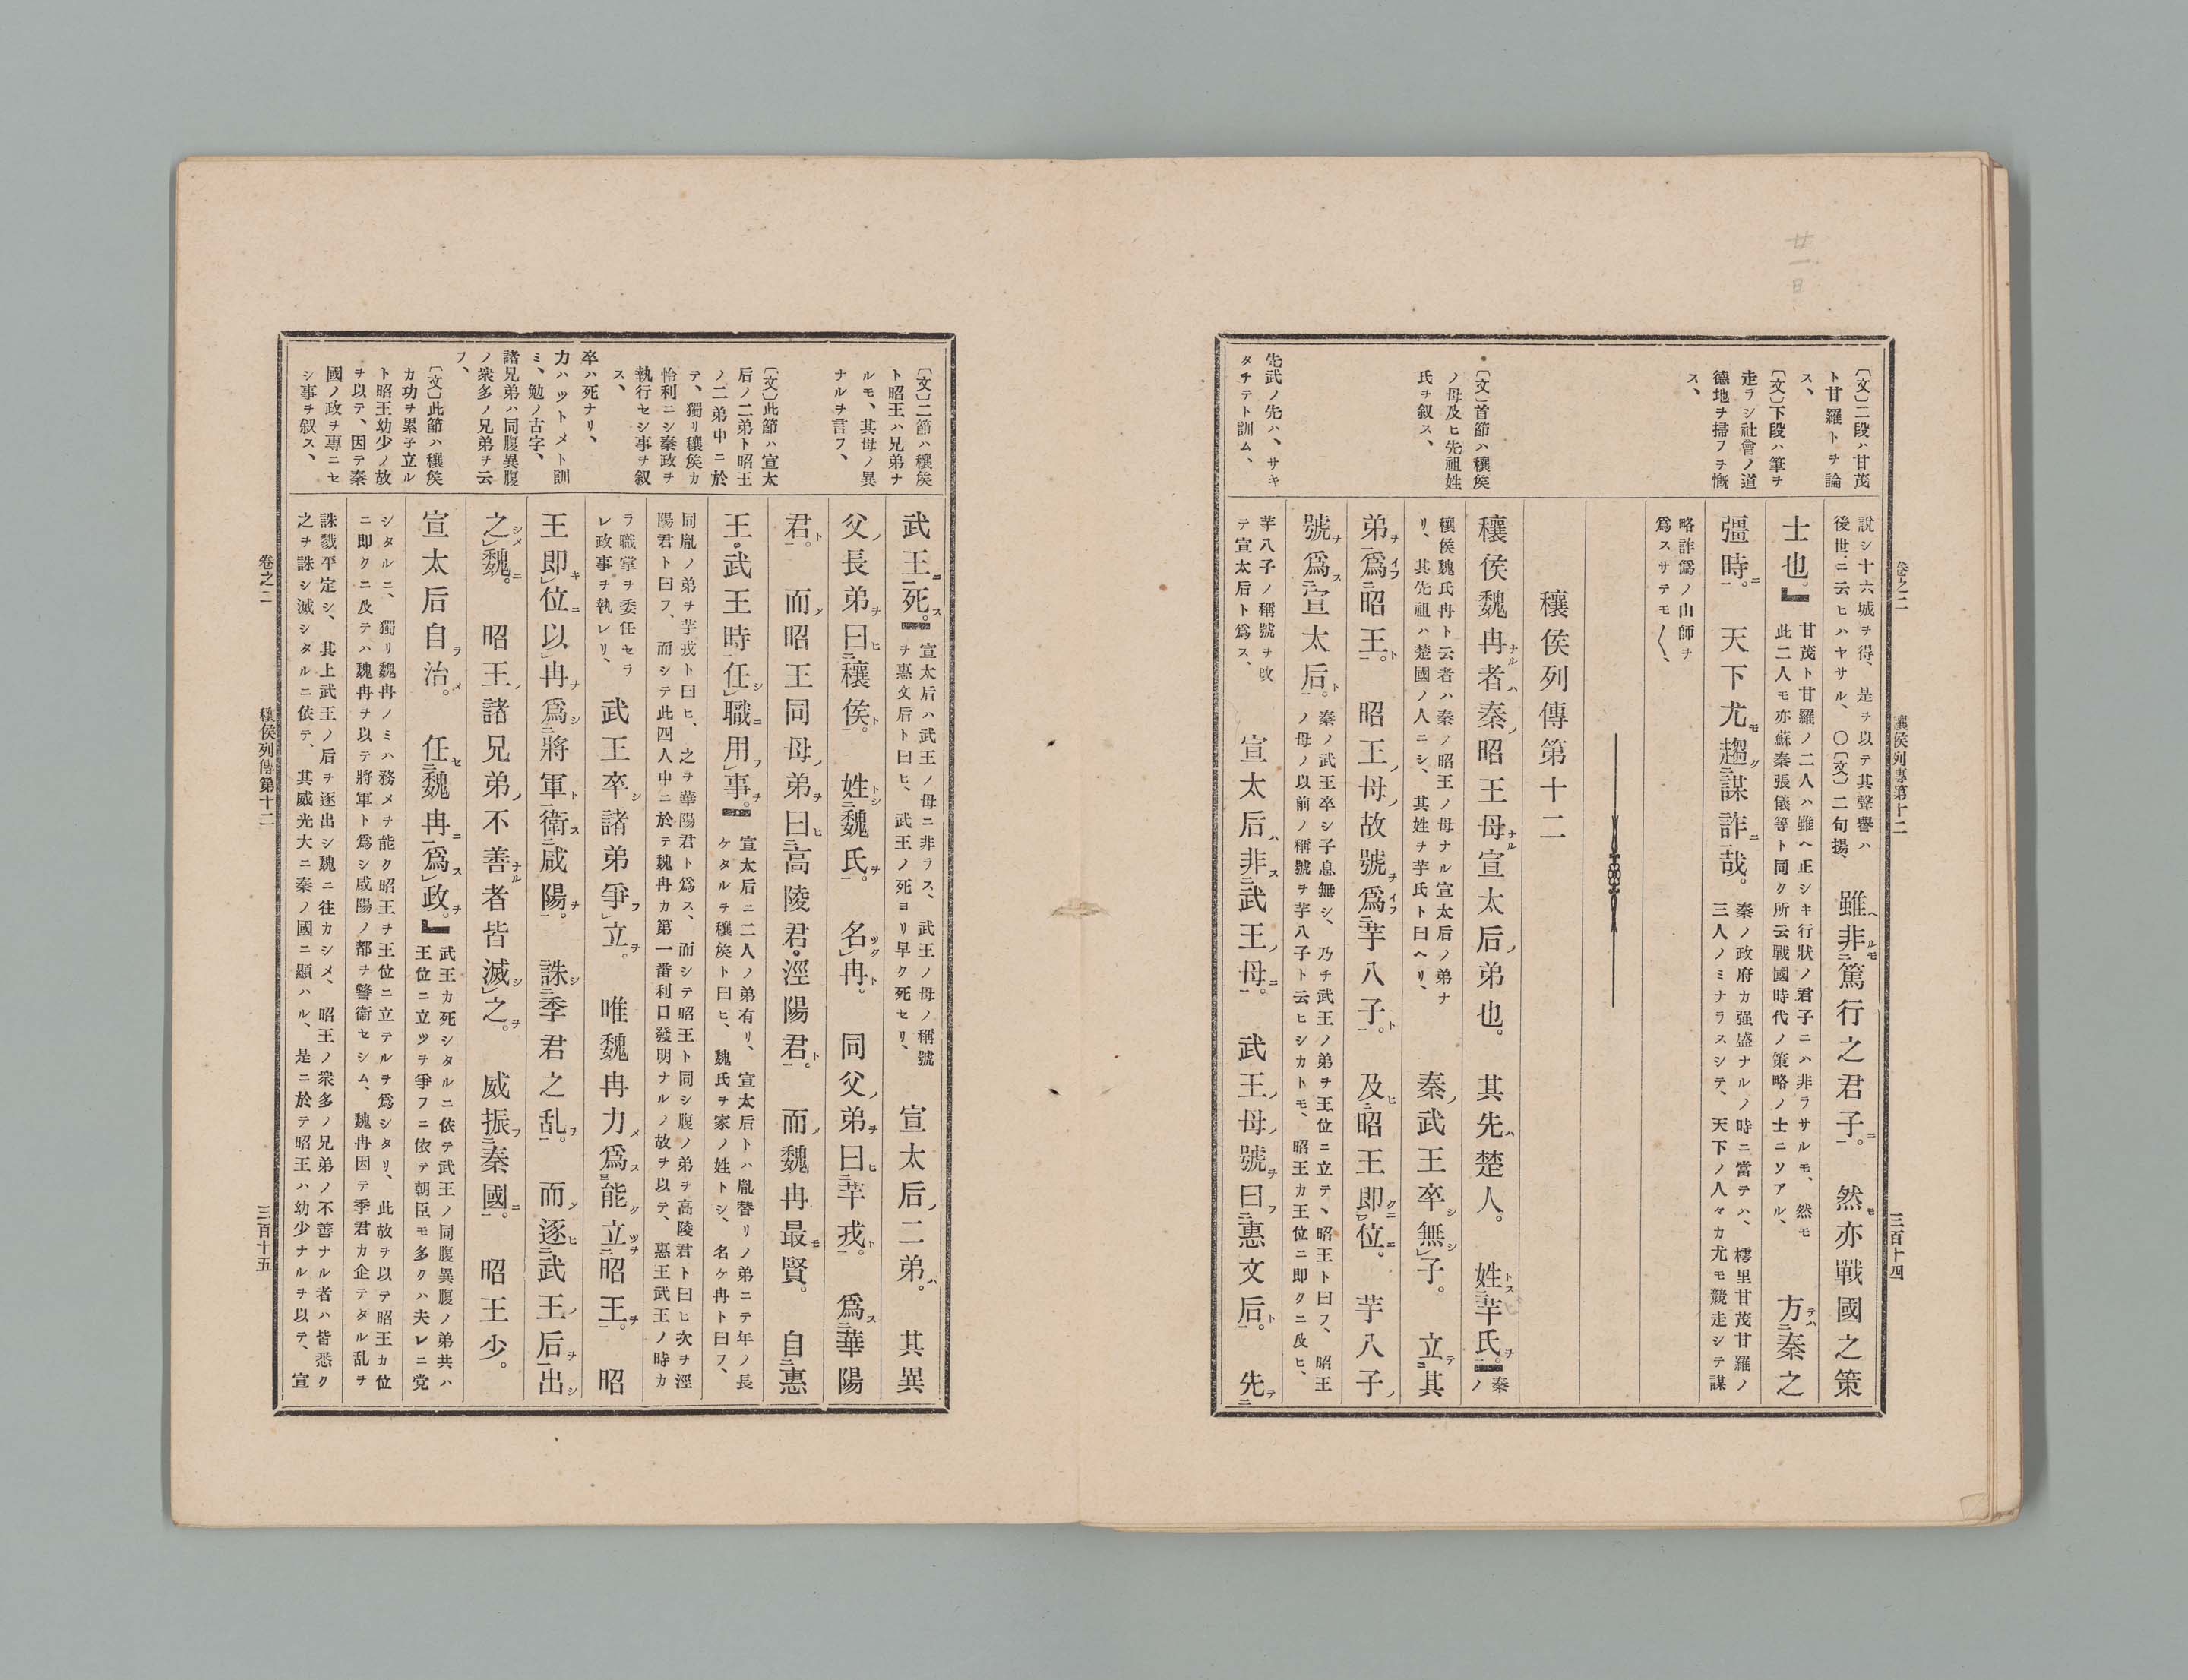 廿一日
卷之二　穰侯列傳第十二　三百十四
〔文〕二段ハ甘茂
ト甘羅トヲ論
ス、
〔文〕下段ハ筆ヲ
走ラシ社會ノ道
德地ヲ掃フヲ慨
ス、
〔文〕首節ハ穰侯
ノ母及ヒ先祖姓
氏ヲ叙ス、
先武ノ先ハ、サキ
タチテト訓ム、
說シ十六城ヲ得、是ヲ以テ其聲譽ハ
後世ニ云ヒハヤサル、〇〔文〕二句揚、
雖非篤行之君子。然亦戰國之策
士也。
甘茂ト甘羅ノ二人ハ雖ヘ正シキ行狀ノ君子ニハ非ラサルモ、然モ
此二人モ亦蘇秦張儀等ト同ク所云戰國時代ノ策略ノ士ニソアル、
方秦之
彊時。天下尤趨謀詐哉。
秦ノ政府カ强盛ナルノ時ニ當テハ、樗里甘茂甘羅ノ
三人ノミナラスシテ、天下ノ人々カ尤モ競走シテ謀
略詐僞ノ山師ヲ
爲スサテモ〱、
穰侯列傳第十二
穰侯魏冉者秦昭王母宣太后弟也。其先楚人。姓芈氏。
秦ノ
穰侯魏氏冉ト云者ハ秦ノ昭王ノ母ナル宣太后ノ弟ナ
リ、其先祖ハ楚國ノ人ニシ、其姓ヲ芋氏ト曰ヘリ、
秦武王卒無子。立其
弟爲昭王。昭王母故號爲芈八子。及昭王即位。芋八子
號爲宣太后。
秦ノ武王卒シ子息無シ、乃チ武王ノ弟ヲ王位ニ立テ、昭王ト曰フ、昭王
ノ母ノ以前ノ稱號ヲ芋八子ト云ヒシカトモ、昭王カ王位ニ即クニ及ヒ、
芋八子ノ稱號ヲ改
テ宣太后ト爲ス、
宣太后非武王母。武王母號曰惠文后。先
武王死。
宣太后ハ武王ノ母ニ非ラス、武王ノ母ノ稱號
ヲ惠文后ト曰ヒ、武王ノ死ヨリ早ク死セリ、
宣太后二弟。其異
父長弟曰穰侯。姓魏氏。名冉。同父弟曰芈戎。爲華陽
君。而昭王同母弟曰高陵君。涇陽君。而魏冉最賢。自惠
王。武王時任職用事。
宣太后ニ二人ノ弟有リ、宣太后トハ胤替リノ弟ニテ年ノ長
ケタルヲ穰侯ト曰ヒ、魏氏ヲ家ノ姓トシ、名ケ冉ト曰フ、
同胤ノ弟ヲ芋戎ト曰ヒ、之ヲ華陽君ト爲ス、而シテ昭王ト同シ腹ノ弟ヲ高陵君ト曰ヒ次ヲ涇
陽君ト曰フ、而シテ此四人中ニ於テ魏冉カ第一番利口發明ナルノ故ヲ以テ、惠王武王ノ時カ
ラ職掌ヲ委任セラ
レ政事ヲ執レリ、
武王卒諸弟爭立。唯魏冉力爲能立昭王。昭
王即位以冉爲將軍衛咸陽。誅季君之乱。而逐武王后出
之魏。昭王諸兄弟不善者皆滅之。威振秦國。昭王少。
宣太后自治。任魏冉爲政。
武王カ死シタルニ依テ武王ノ同腹異腹ノ弟共ハ
王位ニ立ツヲ爭フニ依テ朝臣モ多クハ夫レニ党
シタルニ、獨リ魏冉ノミハ務メヲ能ク昭王ヲ王位ニ立テルヲ爲シタリ、此故ヲ以テ昭王カ位
ニ即クニ及テハ魏冉ヲ以テ將軍ト爲シ咸陽ノ都ヲ警衞セシム、魏冉因テ季君カ企テタル乱ヲ
誅戮平定シ、其上武王ノ后ヲ逐出シ魏ニ往カシメ、昭王ノ衆多ノ兄弟ノ不善ナル者ハ皆悉ク
之ヲ誅シ滅シタルニ依テ、其威光大ニ秦ノ國ニ顯ハル、是ニ於テ昭王ハ幼少ナルヲ以テ、宣
〔文〕二節ハ穰侯
ト昭王ハ兄弟ナ
ルモ、其母ノ異
ナルヲ言フ、
〔文〕此節ハ宣太
后ノ二弟ト昭王
ノ二弟中ニ於
テ、獨リ穰侯カ
怜利ニシ秦政ヲ
執行セシ事ヲ叙
ス、
卒ハ死ナリ、
力ハツトメト訓
ミ、勉ノ古字、
諸兄弟ハ同腹異腹
ノ衆多ノ兄弟ヲ云
フ、
〔文〕此節ハ穰侯
カ功ヲ累子立ル
ト昭王幼少ノ故
ヲ以テ、因テ秦
國ノ政ヲ專ニセ
シ事ヲ叙ス、
卷之二　穰侯列傳第十二　三百十五